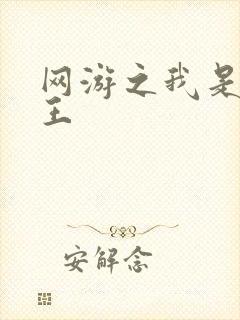 网游之我是
王
安解念